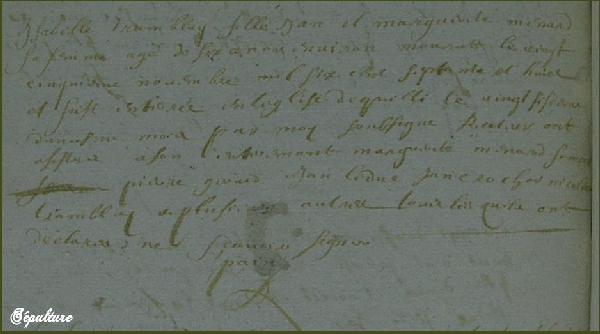 Isabelle Tramblay fille Jan et marguerite menard
sa femme agé de six a environ mourust le vingt
cinquieme novembre mil six cent septante et huict
et fust enterée en leglise de quilli le vingt sixieme
mois par moy soubsigne Recteur ont
assisté a son enterement marguerite menard
pierre Jan ledue Jan
Tramblay et plusieurs autres lesquels ont
declare ne scavoir signer
Sépulture